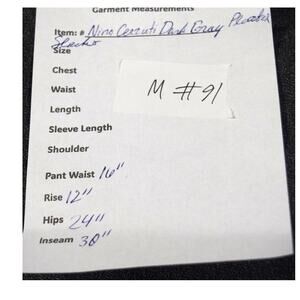 Garment Measurements
Item: # Nino Cerruti Dark Gray Pleated
Slacks
Size
Chest
M #91
Waist
Length
Sleeve Length
Shoulder
Pant Waist 16"
Rise 12"
Hips 24"
Inseam 30"